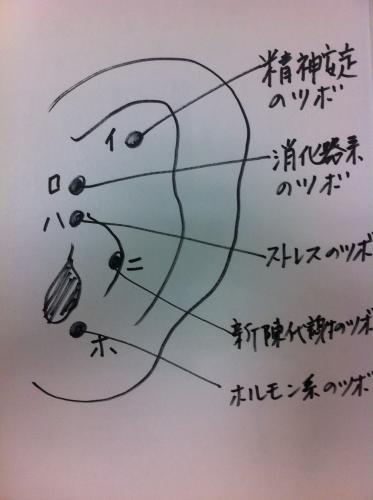 精神安定
のツボ
イ
消化器系
のツボ
ロ
ハ
ストレスのツボ
ニ
新陳代謝のツボ
ホ
ホルモン系のツボ